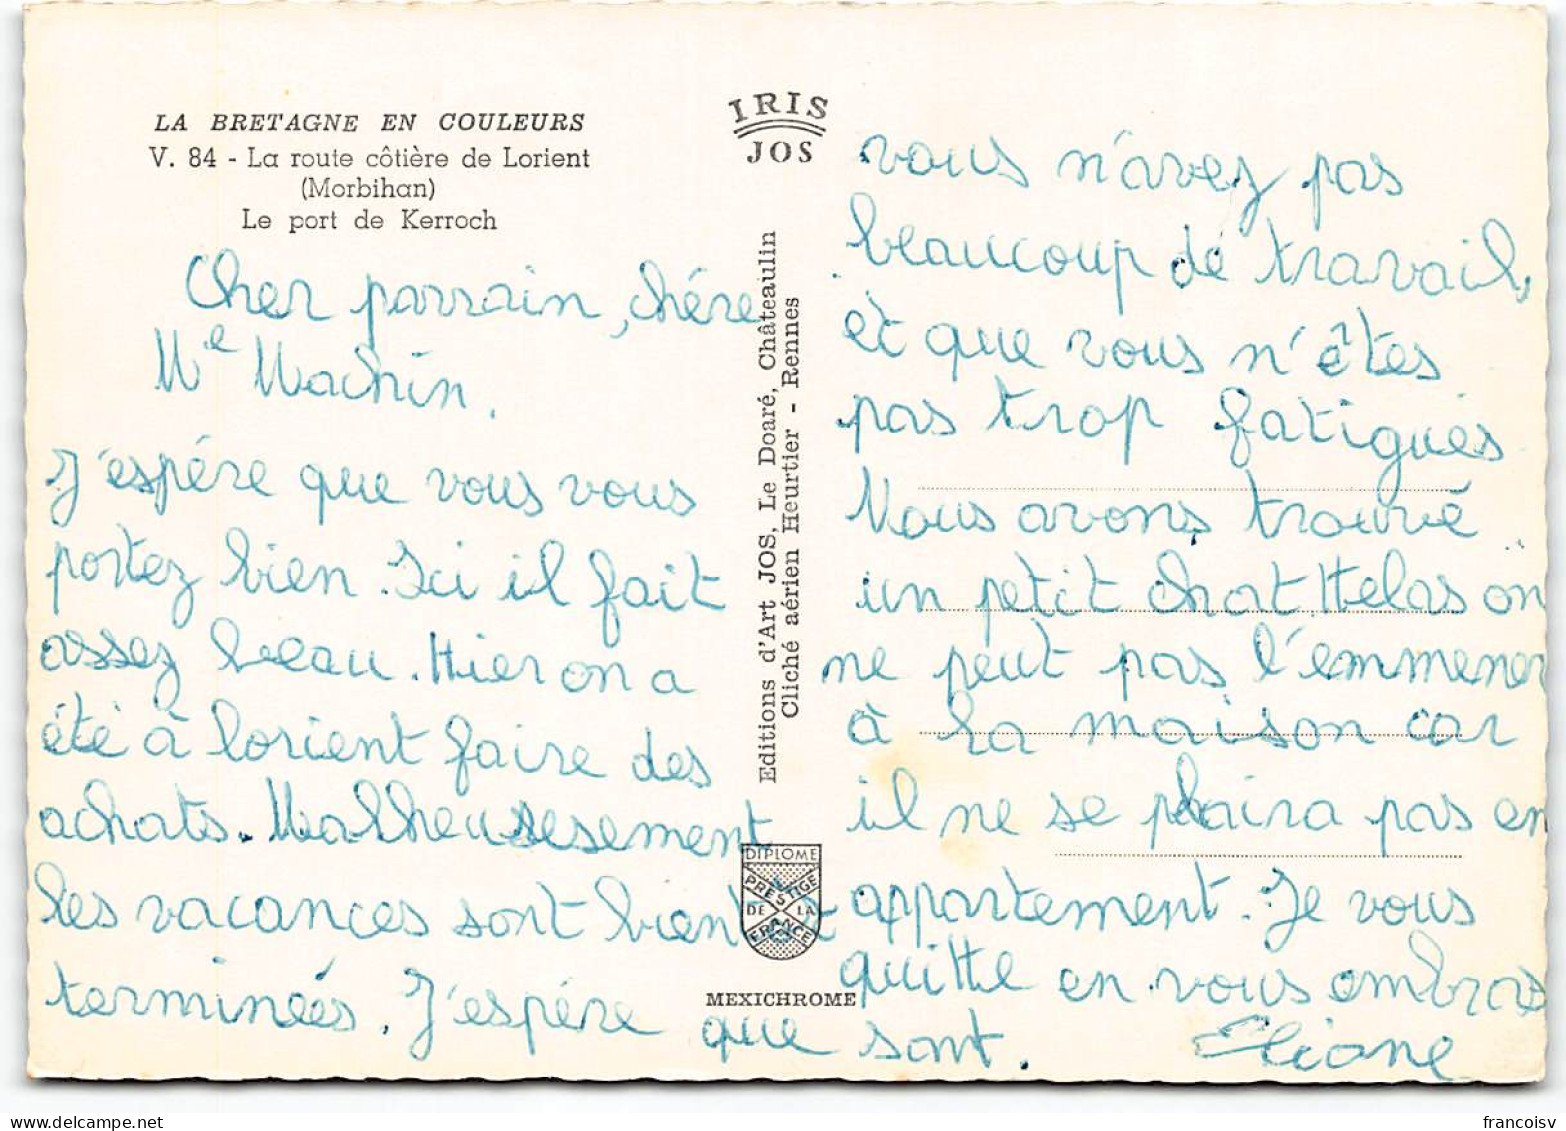 LA BRETAGNE EN COULEURS
V. 84 - La route côtière de Lorient
(Morbihan)
Le port de Kerroch
Cher parrain, chére
Me Machin.
J'espére que vous vous
portez bien. Ici il fait
assez beau. Hier on a
été à lorient faire des
achats. Malheureusesement
les vacances sont bientôt
terminées. J'espére que sont.
IRIS
JOS
Editions d'Art JOS, Le Doaré, Châteaulin
Cliché aérien Heurtier - Rennes
DIPLOME
PRESTIGE
DE LA
FRANCE
MEXICHROME
vous n'avez pas
beaucoup de travail,
et que vous n'êtes
pas trop fatigués
Nous avons trouvé
un petit chat Helas on
ne peut pas l'emmener
à la maison car
il ne se plaira pas en
appartement. Je vous
quitte en vous embras
Eliane
francoisv